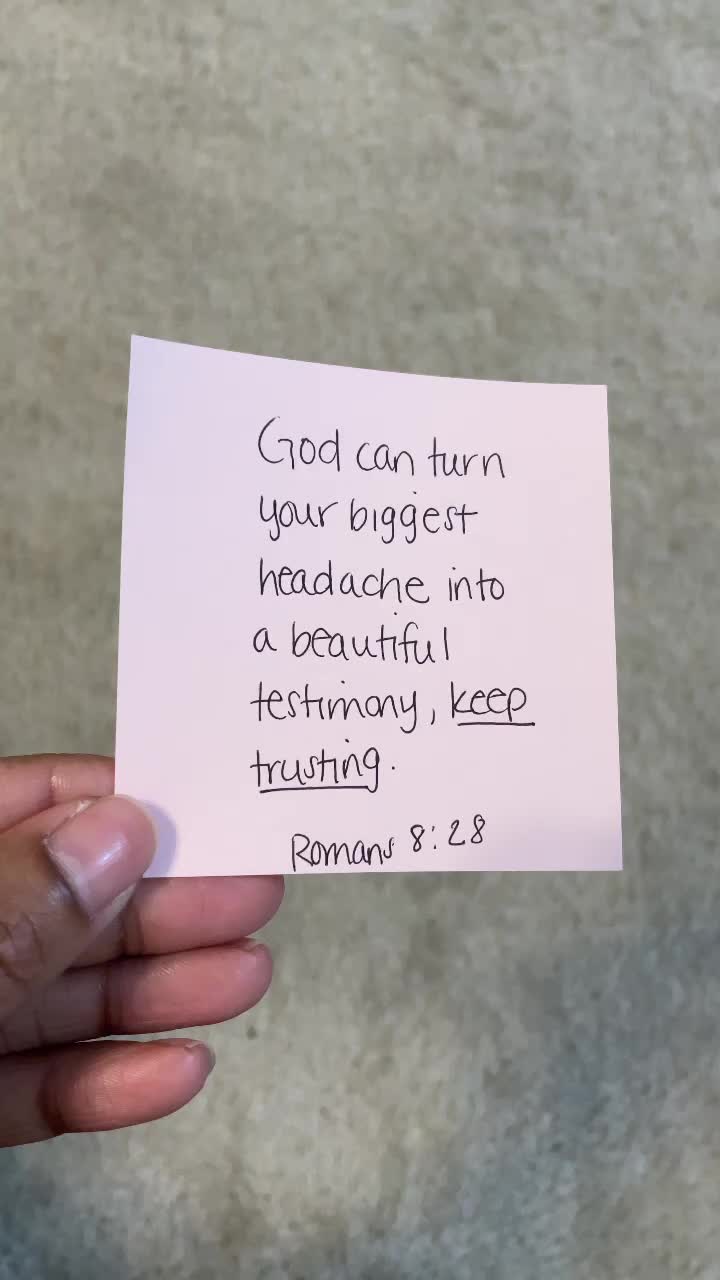 God can turn
your biggest
headache into
a beautiful
testimony, keep
trusting.
Romans 8:28